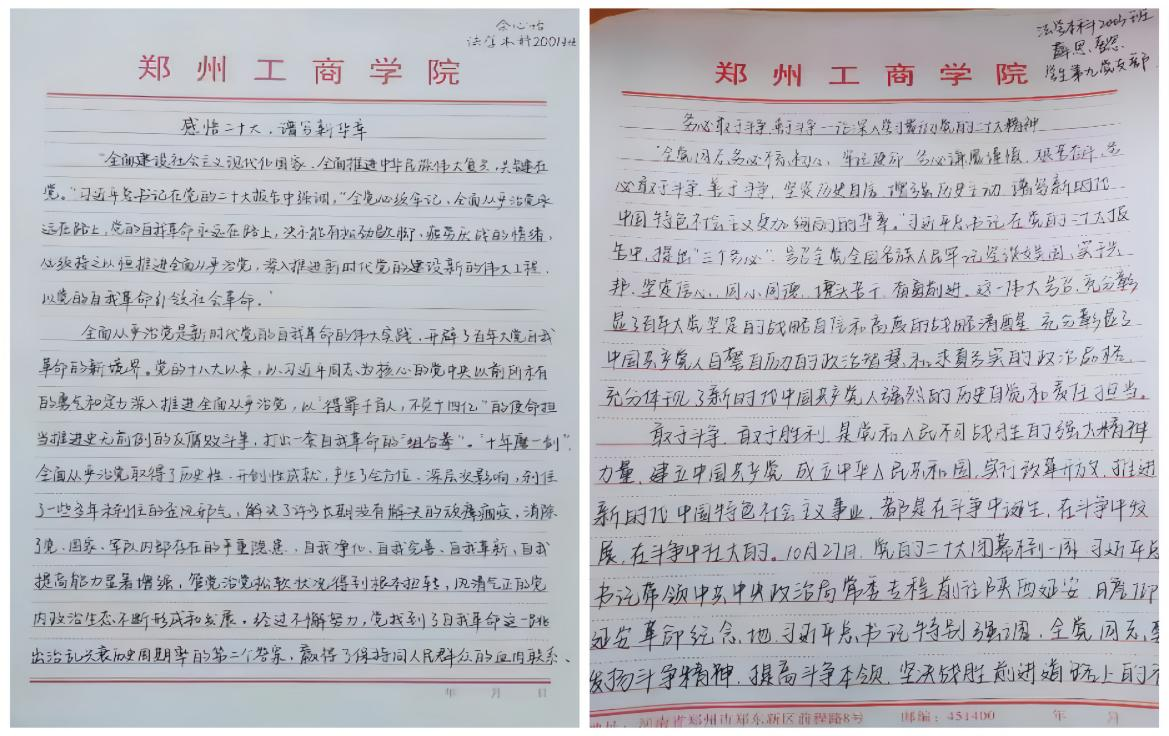 余心怡
法学本科2001班
郑州工商学院
感悟二十大,谱写新华章
“全面建设社会主义现代化国家、全面推进中华民族伟大复兴,关键在
党。”习近平总书记在党的二十大报告中强调,“全党必须牢记,全面从严治党永
远在路上,党的自我革命永远在路上,决不能有松劲歇脚、疲劳厌战的情绪,
必须持之以恒推进全面从严治党,深入推进新时代党的建设新的伟大工程,
以党的自我革命引领社会革命。”
全面从严治党是新时代党的自我革命的伟大实践,开辟了百年大党自我
革命的新境界。党的十八大以来,以习近平同志为核心的党中央以前所未有
的勇气和定力深入推进全面从严治党,以“得罪千百人,不负十四亿”的使命担
当推进史无前例的反腐败斗争,打出一套自我革命的“组合拳”。“十年磨一剑”,
全面从严治党取得了历史性、开创性成就,产生了全方位、深层次影响,刹住
了一些多年未刹住的歪风邪气,解决了许多长期没有解决的顽瘴痼疾,消除
了党、国家、军队内部存在的严重隐患,自我净化、自我完善、自我革新、自我
提高能力显著增强,管党治党松软状况得到根本扭转,风清气正的党
内政治生态不断形成和发展。经过不懈努力,党找到了自我革命这一跳
出治乱兴衰历史周期率的第二个答案,赢得了保持同人民群众的血肉联系、
年 月 日
法学本科2005班
学生第九党支部
郑州工商学院
务必敢于斗争、善于斗争—论深入学习贯彻党的二十大精神
“全党同志务必不忘初心、牢记使命,务必谦虚谨慎、艰苦奋斗,务
必敢于斗争、善于斗争,坚定历史自信,增强历史主动,谱写新时代
中国特色社会主义更加绚丽的华章。”习近平总书记在党的二十大报
告中,提出“三个务必”,号召全党全国各族人民牢记空谈误国、实干兴
邦,坚定信心、同心同德,埋头苦干、奋勇前进。这一伟大号召,充分彰
显了百年大党坚定的战略自信和高度的战略清醒,充分彰显了
中国共产党人自警自励的政治智慧和求真务实的政治品格,
充分体现了新时代中国共产党人强烈的历史自觉和责任担当。
敢于斗争、敢于胜利,是党和人民不可战胜的强大精神
力量。建立中国共产党、成立中华人民共和国、实行改革开放、推进
新时代中国特色社会主义事业,都是在斗争中诞生、在斗争中发
展、在斗争中壮大的。10月27日,党的二十大闭幕不到一周,习近平总
书记带领中共中央政治局常委专程前往陕西延安,瞻仰
延安革命纪念地,习近平总书记特别强调,全党同志要
发扬斗争精神,提高斗争本领,坚决战胜前进道路上的
地址:河南省郑州市郑东新区前程路8号 邮编:451400 年 月